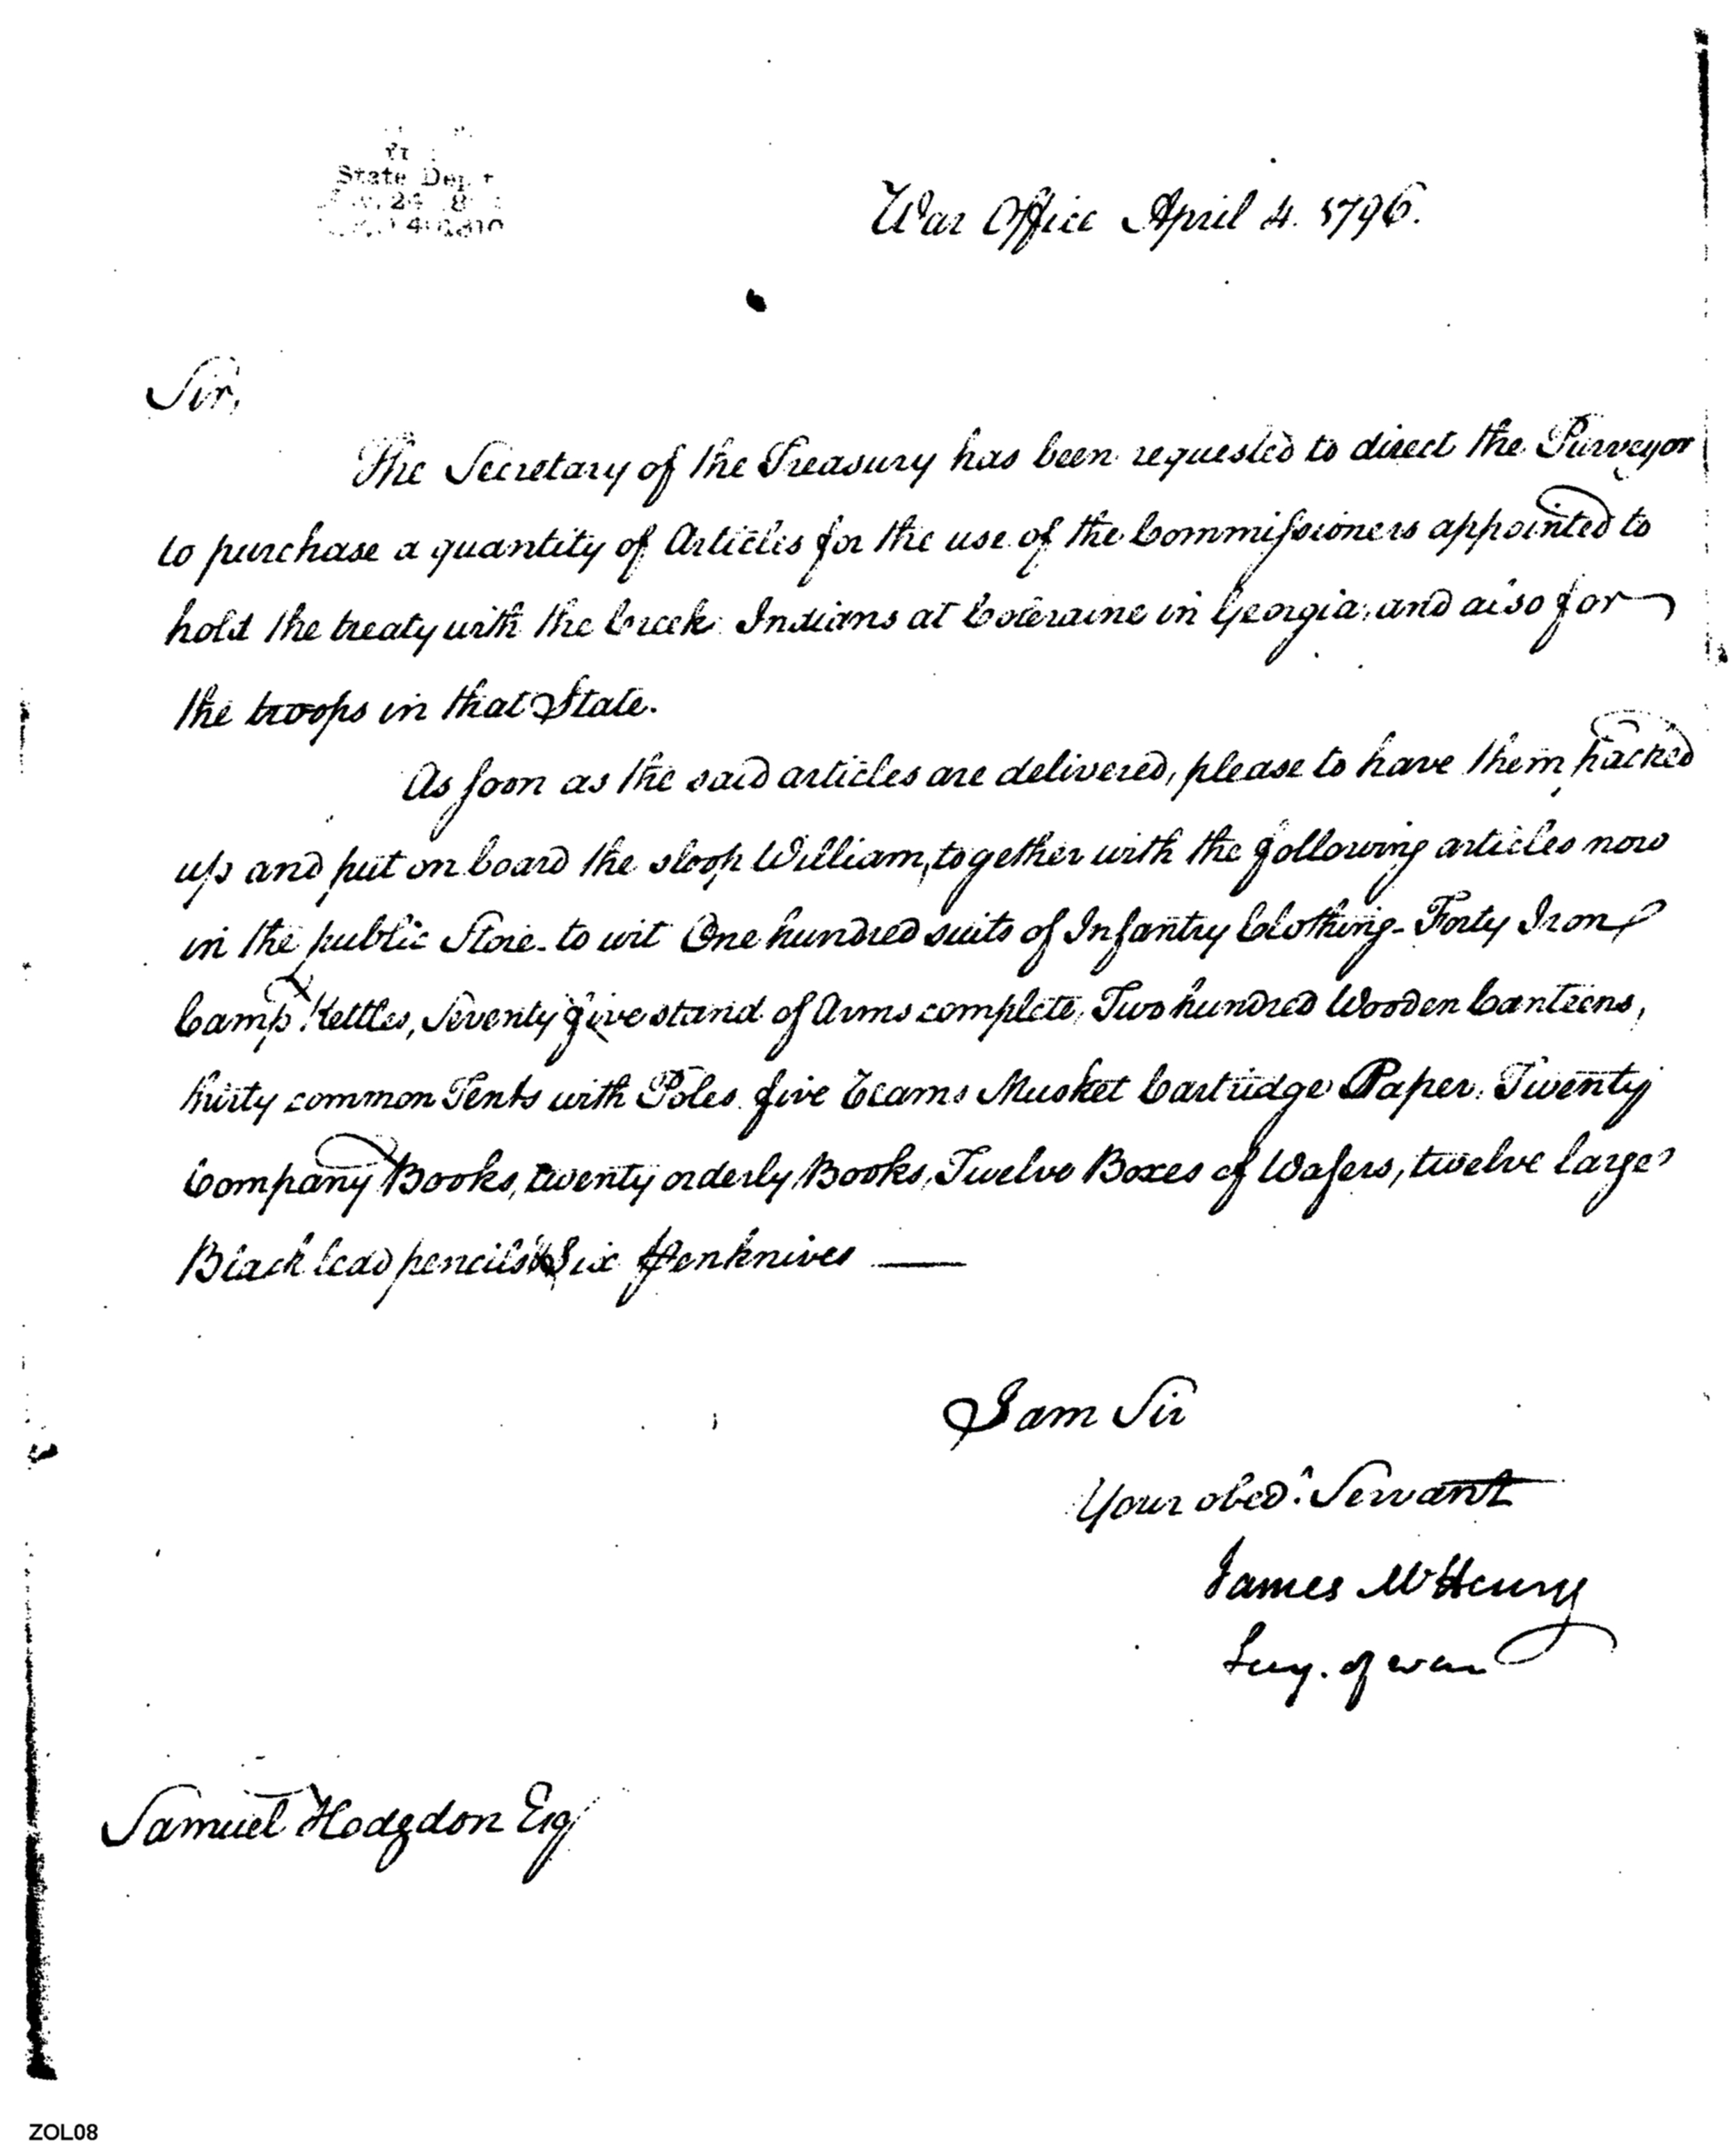 State Dept
War Office April 4. 1796.
Sir,
The Secretary of the Treasury has been requested to direct the Purveyor
to purchase a quantity of Articles for the use of the Commissioners appointed to
hold the treaty with the Creek Indians at Coleraine in Georgia, and also for
the troops in that State.
As soon as the said articles are delivered, please to have them packed
up and put on board the sloop William, together with the following articles now
in the public Store - to wit One hundred suits of Infantry Clothing - Forty Iron
Camp Kettles, Seventy five stand of Arms complete, Two hundred Wooden Canteens,
thirty common Tents with Poles five Reams Musket Cartridge Paper, Twenty
Company Books, twenty orderly Books, Twelve Boxes of Wafers, twelve large
Black lead pencils & Six Penknives
I am Sir
Your obedt. Servant
James McHenry
Secy. of war
Samuel Hodgdon Esq
ZOL08